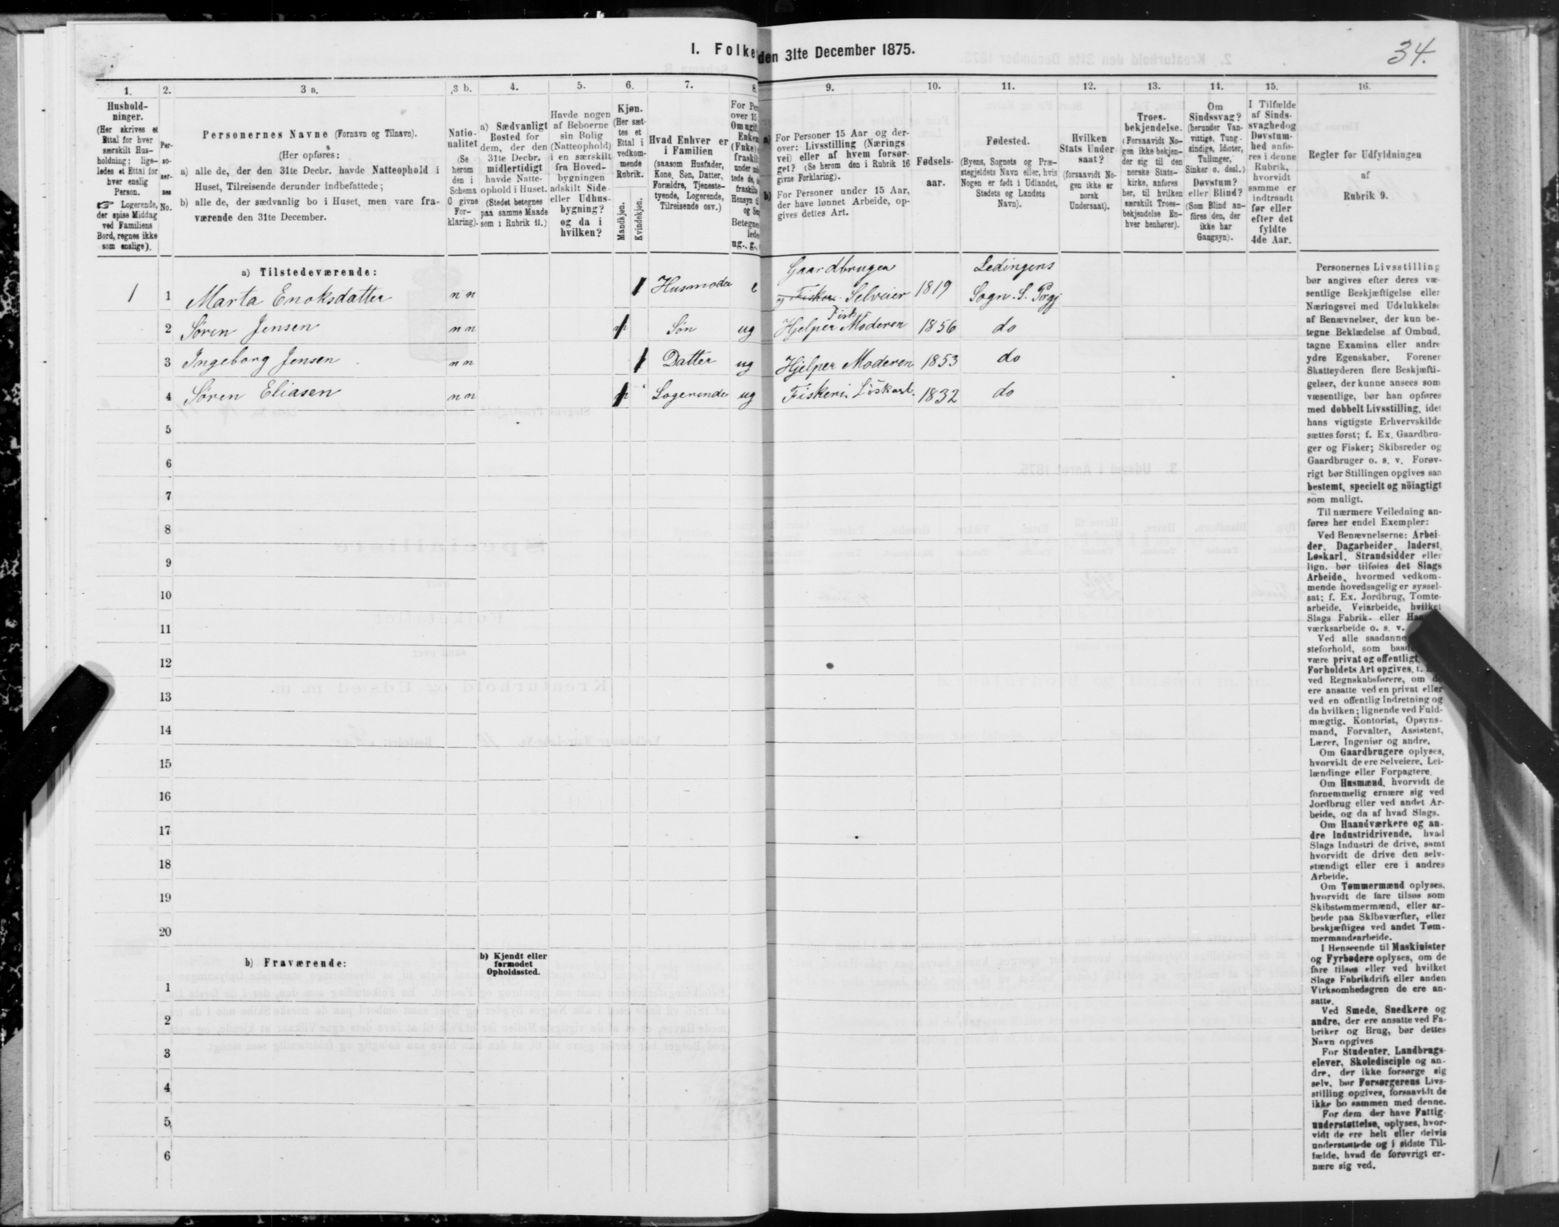 34.
I. Folke
den 31te December 1875.
1.
2.
3 a.
3 b.
4.
5.
6.
7.
8.
9.
10.
11.
12.
13.
14.
15.
16.
Hushold-
ninger.
(Her skrives et
Ettal for hver
særskilt Hus-
holdning; lige-
ledes et Ettal for
hver enslig
Person.
☞ Logerende,
der spise Middag
ved Familiens
Bord, regnes ikke
som enslige).
Per-
so-
ner-
nes
No.
Personernes Navne (Fornavn og Tilnavn).
(Her opføres:
a) alle de, der den 31te Decbr. havde Natteophold i
Huset, Tilreisende derunder indbefattede;
b) alle de, der sædvanlig bo i Huset, men vare fra-
værende den 31te December.
Natio-
nalitet
(Se
herom
den i
Schema
O givne
For-
klaring).
a) Sædvanligt
Bosted for
dem, der den
31te Decbr.
midlertidigt
havde Natte-
ophold i Huset.
(Stedet betegnes
paa samme Maade
som i Rubrik 11.)
Havde nogen
af Beboerne
sin Bolig
(Natteophold)
i en særskilt
fra Hoved-
bygningen
adskilt Side-
eller Udhus-
bygning?
og da i
hvilken?
Kjøn.
(Her sæt-
tes et
Ettal i
vedkom-
mende
Rubrik.
Mandkjøn.
Kvindekjøn.
Hvad Enhver er
i Familien
(saasom Husfader,
Kone, Søn, Datter,
Forældre, Tjeneste-
tyende, Logerende,
Tilreisende osv.)
For Per
over 15
Om ugift
Enkem
(Enke)
fraskil
ug., g.,
a) For Personer 15 Aar og der-
over: Livsstilling (Nærings
vei) eller af hvem forsør-
get? (Se herom den i Rubrik 16
givne Forklaring).
b) For Personer under 15 Aar,
der have lønnet Arbeide, op-
gives dettes Art.
Fødsels-
aar.
Fødested.
(Byens, Sognets og Præ-
stegjeldets Navn eller, hvis
Nogen er født i Udlandet,
Stedets og Landets
Navn).
Hvilken
Stats Under
saat?
(forsaavidt No-
gen ikke er
norsk
Undersaat).
Troes-
bekjendelse.
(Forsaavidt No-
gen ikke bekjen-
der sig til den
norske Stats-
kirke, anføres
her, til hvilken
særskilt Troes-
bekjendelse En-
hver henhører).
Om
Sindssvag?
(herunder Van-
vittige, Tung-
sindige, Idioter,
Tullinger,
Sinker o. desl.)
Døvstum?
eller Blind?
(Som Blind an-
føres den, der
ikke har
Gangsyn).
I Tilfælde
af Sinds-
svaghed og
Døvstum-
hed anfø-
res i denne
Rubrik,
hvorvidt
samme er
indtraadt
før eller
efter det
fyldte
4de Aar.
Regler for Udfyldningen
af
Rubrik 9.
a) Tilstedeværende:
1 1 Marta Enoksdatter n n 1 Husmoder e Gaardbruger og Fisker. Selveier 1819 Ledingens Sogn. S. Prgj
2 Søren Jensen n n 1 Søn ug Hjelper Moderen Fisk 1856 do
3 Ingeborg Jensen n n 1 Datter ug Hjelper Moderen 1853 do
4 Søren Eliasen n n 1 Logerende ug Fiskeri. Löskarl. 1832 do
5
6
7
8
9
10
11
12
13
14
15
16
17
18
19
20
b) Fraværende:
b) Kjendt eller
formodet
Opholdssted.
1
2
3
4
5
6
Personernes Livsstilling
bør angives efter deres væ-
sentlige Beskjæftigelse eller
Næringsvei med Udelukkelse
af Benævnelser, der kun be-
tegne Beklædelse af Ombud,
tagne Examina eller andre
ydre Egenskaber. Forener
Skatteyderen flere Beskjæfti-
gelser, der kunne ansees som
væsentlige, bør han opføres
med dobbelt Livsstilling, idet
hans vigtigste Erhvervskilde
sættes først; f. Ex. Gaardbru-
ger og Fisker; Skibsreder og
Gaardbruger o. s. v. Forøv-
rigt bør Stillingen opgives saa
bestemt, specielt og nøiagtigt
som muligt.
Til nærmere Veiledning an-
føres her endel Exempler:
Ved Benævnelserne: Arbei-
der, Dagarbeider, Inderst,
Løskarl, Strandsidder eller
lign. bør tilføies det Slags
Arbeide, hvormed vedkom-
mende hovedsagelig er syssel-
sat; f. Ex. Jordbrug, Tomte-
arbeide, Veiarbeide, hvilket
Slags Fabrik- eller
værksarbeide o. s. v.
Ved alle saadanne
steforhold, som
være privat og offentligt,
Forholdets Art opgives,
ved Regnskabsførere, om
ere ansatte ved en privat eller
ved en offentlig Indretning og
da hvilken; lignende ved Fuld-
mægtig, Kontorist, Opsyns-
mand, Forvalter, Assistent,
Lærer, Ingeniør og andre.
Om Gaardbrugere oplyses,
hvorvidt de ere Selveiere, Lei-
lændinge eller Forpagtere.
Om Husmænd, hvorvidt de
fornemmelig ernære sig ved
Jordbrug eller ved andet Ar-
beide, og da af hvad Slags.
Om Haandværkere og an-
dre Industridrivende, hvad
Slags Industri de drive, samt
hvorvidt de drive den selv-
stændigt eller ere i andres
Arbeide.
Om Tømmermænd oplyses,
hvorvidt de fare tilsøs som
Skibstømmermænd, eller ar-
beide paa Skibsværfter, eller
beskjæftiges ved andet Tøm-
mermandsarbeide.
I Henseende til Maskinister
og Fyrbødere oplyses, om de
fare tilsøs eller ved hvilket
Slags Fabrikdrift eller anden
Virksomhedsgren de ere an-
satte.
Ved Smede, Snedkere og
andre, der ere ansatte ved Fa-
briker og Brug, bør dettes
Navn opgives
For Studenter, Landbrugs-
elever, Skoledisciple og an-
dre, der ikke forsørge sig
selv, bør Forsørgerens Livs-
stilling opgives, forsaavidt de
ikke bo sammen med denne.
For dem, der have Fattig-
understøttelse, oplyses, hvor-
vidt de ere helt eller delvis
understøttede og i sidste Til-
fælde, hvad de forøvrigt er-
nære sig ved.